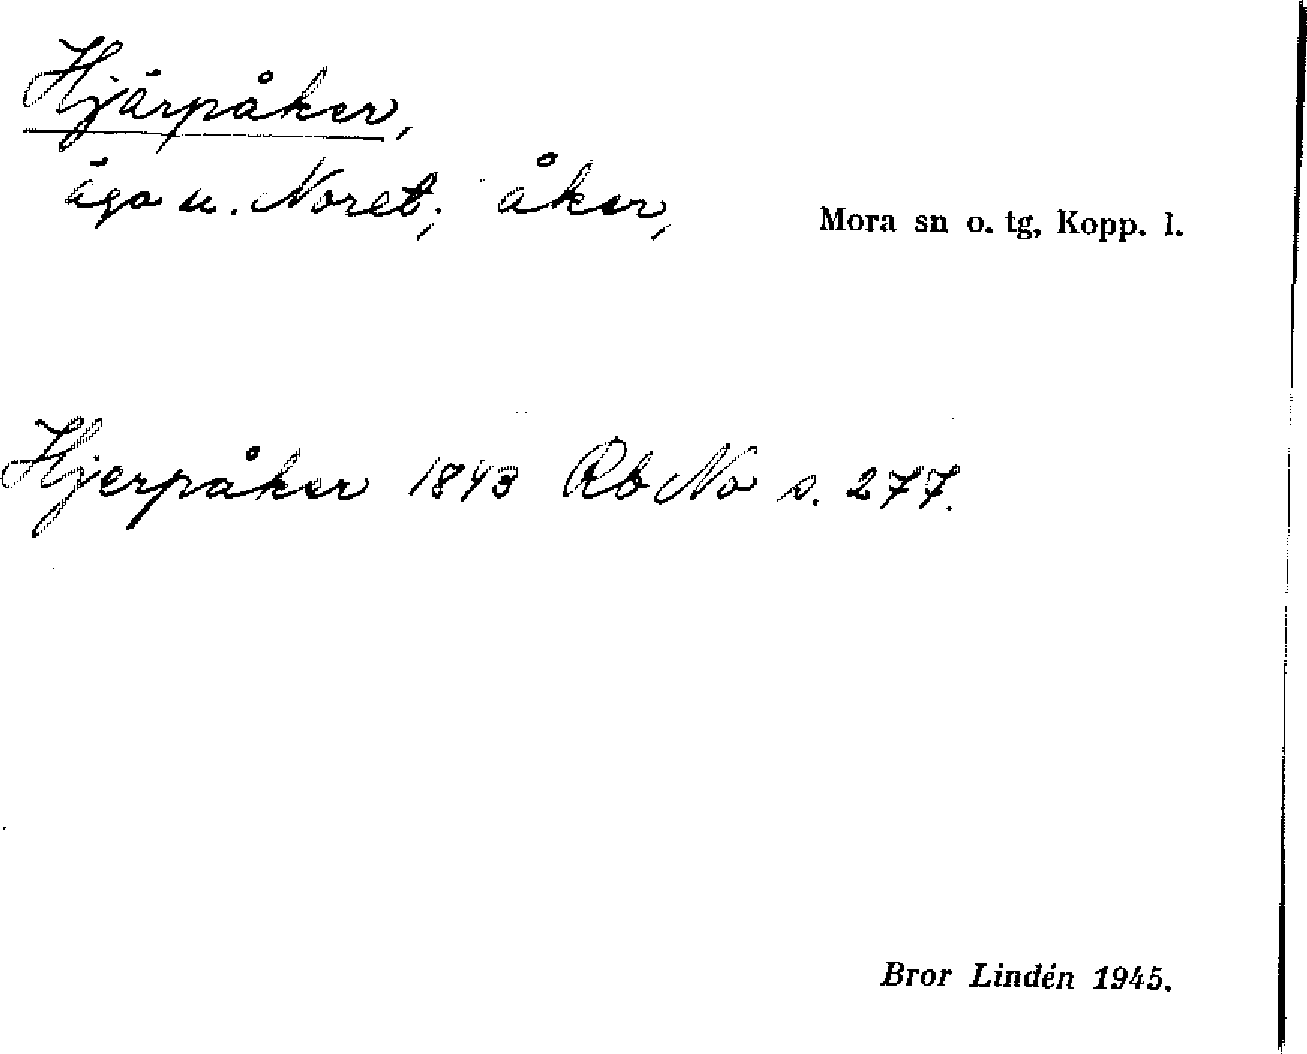 Hjärpåker,
äga u. Noret; åker,
Mora sn o. tg, Kopp. l.
Hjerpåker 1843 Rb No s. 277.
Bror Lindén 1945.